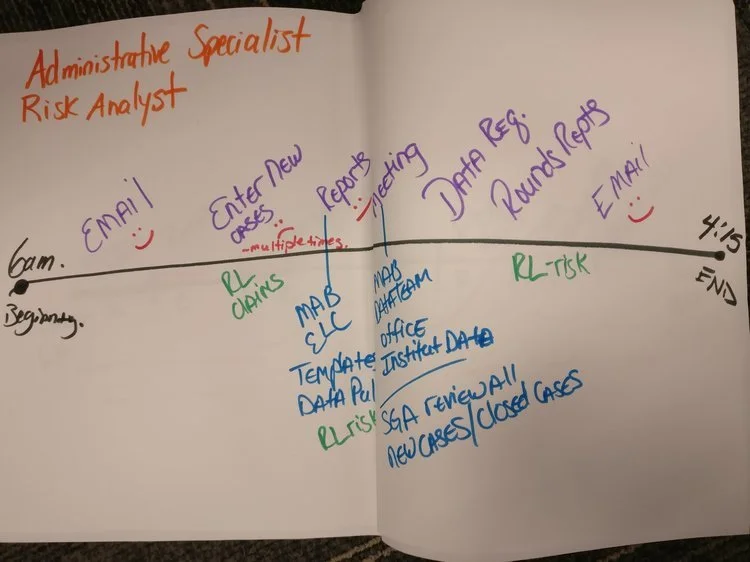 Administrative Specialist
Risk Analyst
6am.
Beginning.
EMAIL
Enter New
CASES
-multiple times.
RL
CLAIMS
Reports
MAB
ELC
Templates
DATA Pul
RL risk
Meeting
MAB
DATA TEAM
office
Institut Data
SGA review All
new CASES/Closed CASES
DATA Req.
Rounds Repts
RL-risk
EMAil
4:15
END